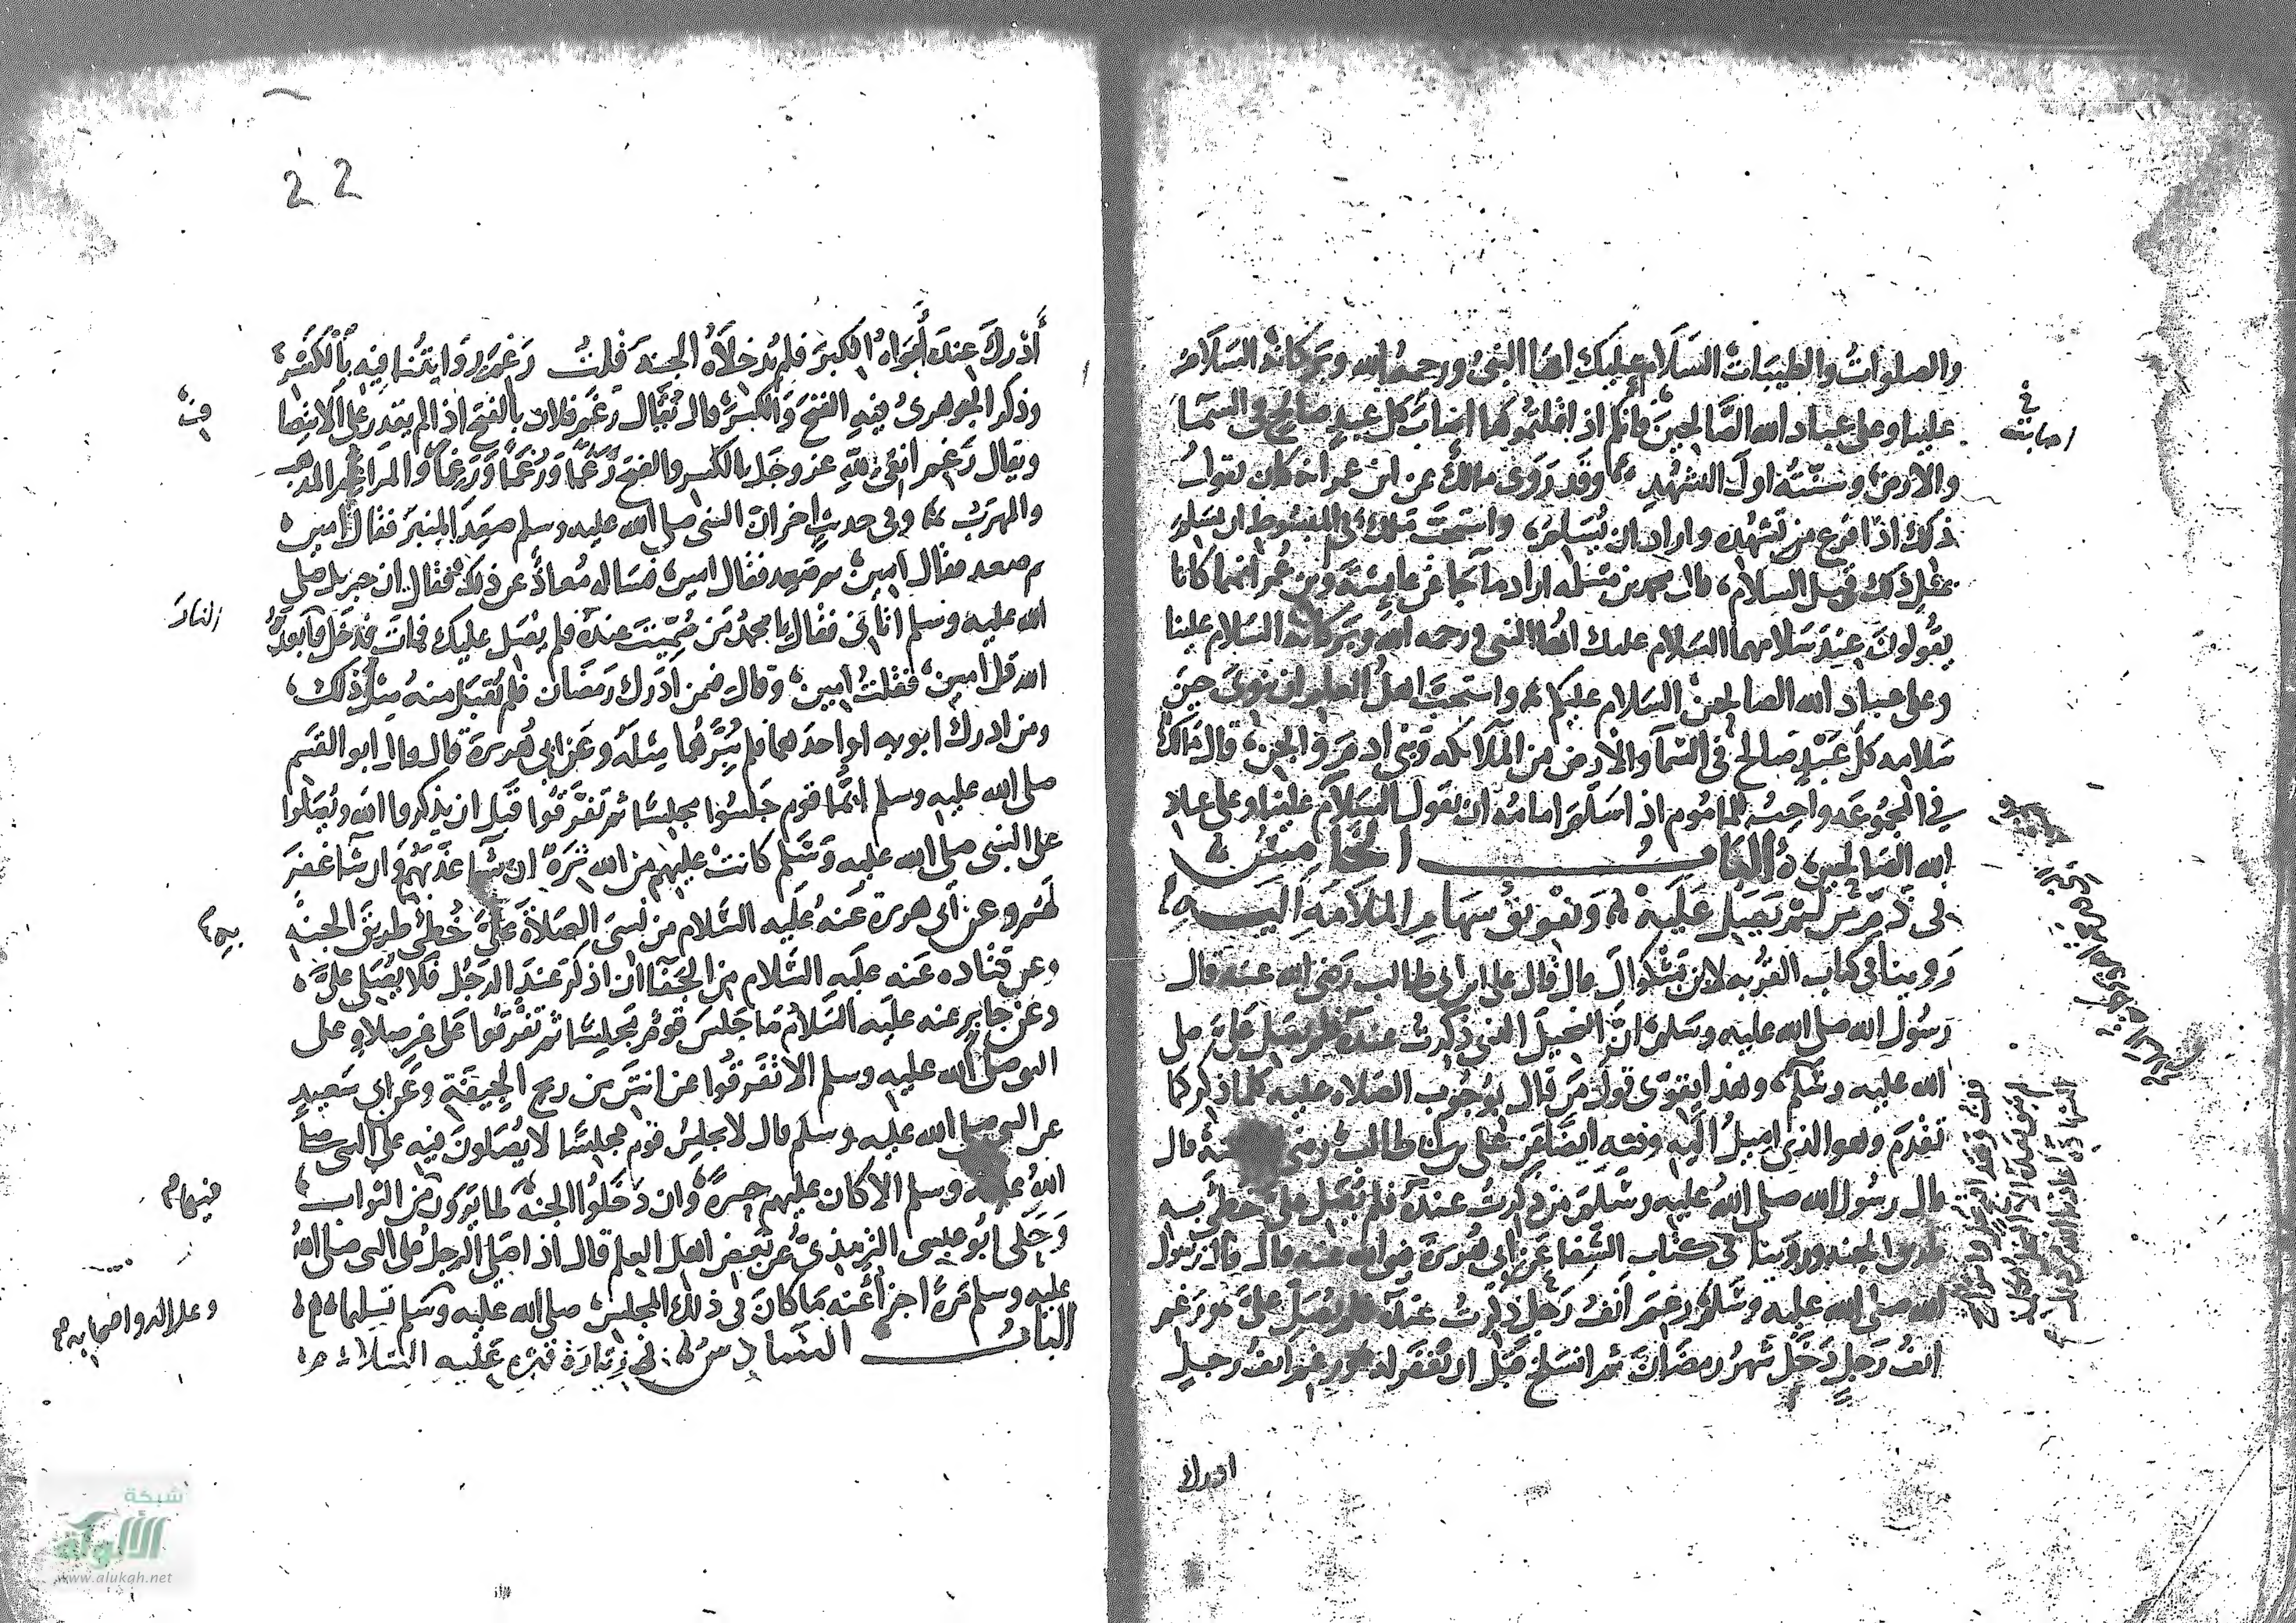 والصلوات والطيبات السلام عليك ايها النبي ورحمة الله وبركاته السلام
علينا وعلى عباد الله الصالحين فانكم اذا قلتموها اصابت كل عبد صالح في السما
والارض وسنته اول التشهد وقد روى مالك عن ابن عمر انه كان يقول
ذلك اذا فرغ من تشهده واراد ان يسلم واستحب مالك في المبسوط ان يسلم
بمثل ذلك قبل السلام قال محمد بن مسلمة اراد ما جا عن عايشة وبن عمر انهما كانا
يقولون عند سلامهما السلام عليك ايها النبي ورحمة الله وبركاته السلام علينا
وعلى عباد الله الصالحين السلام عليكم واستحب اهل العلم ان ينوي حين
سلامه كل عبد صالح في السما والارض من الملائكة وبني ادم والجن قال مالك
في المجموعه واحب للماموم اذا سلم امامه ان يقول السلام علينا وعلى عباد
الله الصالحين الباب الخامس
في ذم من لم يصل عليه وتفويق سهام الملامة اليه
روينا في كتاب القربه لابن بشكوال قال قال علي ابن ابي طالب رضي الله عنه قال
رسول الله صلى الله عليه وسلم ان البخيل الذي ذكرت عنده فلم يصل علي صلى
الله عليه وسلم وهذا يقوي قول من قال بوجوب الصلاه عليه كلما ذكر كما
تقدم وهو الذي اميل اليه وفيه ايضا عن علي بن ابي طالب رضي عنه قال
قال رسول الله صلى الله عليه وسلم من ذكرت عنده فلم يصل علي خطي به
طريق الجنه وروينا في كتاب الشفا عن ابي هريرة رضي الله عنه قال قال رسول
الله صلى الله عليه وسلم رغم انف رجل ذكرت عنده فلم يصل علي ورغم
انف رجل دخل شهر رمضان ثم انسلخ قبل ان يغفر له ورغم انف رجل
ادرك
في
اصابت
22
أدرك عنده أبواه الكبر فلم يدخلاه الجنة قلت رغم روايتنا فيه بالكسر
وذكر الجوهري فيه الفتح والكسر قال يقال رغم فلان بالفتح اذا لم يقدر على الانتصا
ف
ويقال رغم انفي لله عز وجل بالكسر والفتح رغما ورغما ورغما والمراغم المذهب
والمهرب وفي حديث اخر ان النبي صلى الله عليه وسلم صعد المنبر فقال امين
ثم صعد فقال امين ثم صعد فقال امين فساله معاذ عن ذلك فقال ان جبريل صلى
الله عليه وسلم اتاني فقال يا محمد من سميت عنده فلم يصل عليك فمات فدخل فابعده
النار
الله قل امين فقلت امين وقال فمن ادرك رمضان فلم يقبل منه مثل ذلك
ومن ادرك ابويه او احدهما فلم يبرهما مثله وعن ابي هريرة قال قال ابو القسم
صلى الله عليه وسلم ايما قوم جلسوا مجلسا ثم تفرقوا قبل ان يذكروا الله ويصلوا
على النبي صلى الله عليه وسلم كانت عليهم من الله ترة ان شا عذبهم وان شا غفر
لهم وعن ابي هريرة عنه عليه السلام من نسي الصلاة علي خطي طريق الجنة
به
وعن قتاده عنه عليه السلام من الجفا ان اذكر عند الرجل فلا يصلي علي
وعن جابر عنه عليه السلام ما جلس قوم مجلسا ثم تفرقوا على غير صلاة على
النبي صلى الله عليه وسلم الا تفرقوا عن انتن من ريح الجيفة وعن ابي سعيد
عن النبي صلى الله عليه وسلم قال لا يجلس قوم مجلسا لا يصلون فيه على النبي صلى
الله عليه وسلم الا كان عليهم حسرة وان دخلوا الجنة لما يرون من الثواب
فيها
وحكى ابو عيسى الترمذي عن بعض اهل العلم قال اذا صلى الرجل على النبي صلى الله
عليه وسلم مرة اجزأ عنه ما كان في ذلك المجلس صلى الله عليه وسلم تسليما
وعلى اله واصحابه
الباب السادس في زيارة قبره عليه السلام
شبكة
الألوكة
www.alukah.net